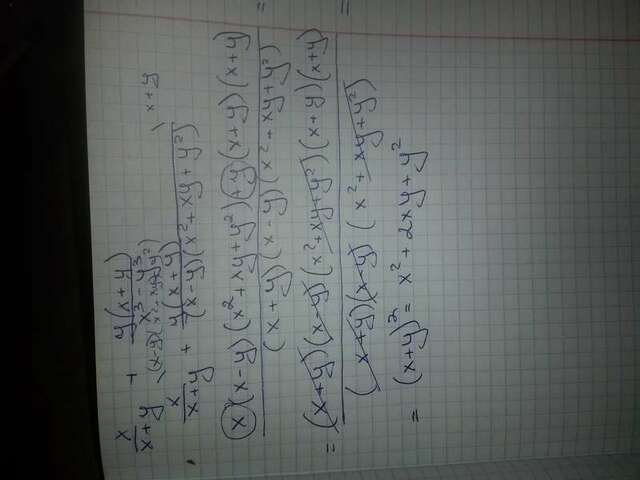 x/(x+y) + y(x+y)/(x³-y³)
x/(x+y) + y(x+y)/((x-y)(x²+xy+y²)) x+y
x(x-y)(x²+xy+y²)+y(x+y)(x+y)/((x+y)(x-y)(x²+xy+y²)) =
= (x+y)(x-y)(x²+xy+y²)(x+y)(x+y)/((x+y)(x-y)(x²+xy+y²)) =
= (x+y)² = x²+2xy+y²